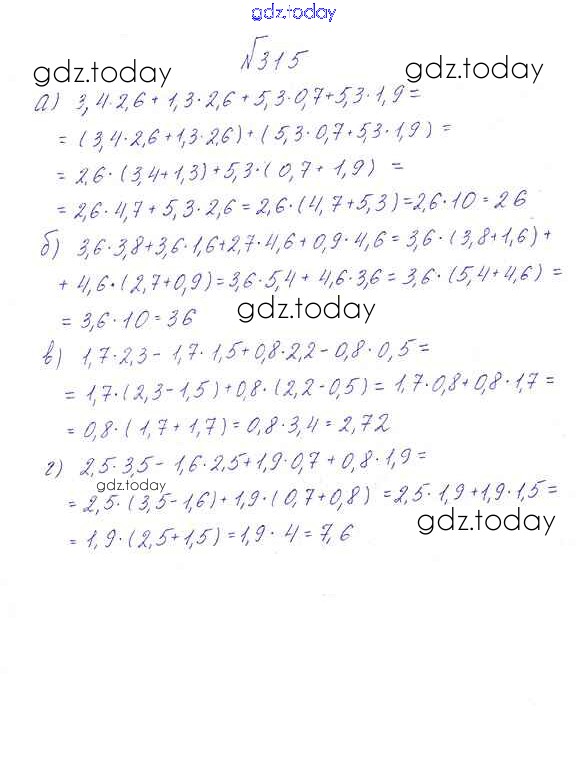 gdz.today
№315
gdz.today gdz.today
а) 3,4·2,6+1,3·2,6+5,3·0,7+5,3·1,9=
=(3,4·2,6+1,3·2,6)+(5,3·0,7+5,3·1,9)=
=2,6·(3,4+1,3)+5,3·(0,7+1,9) =
=2,6·4,7+5,3·2,6=2,6·(4,7+5,3)=2,6·10=26
б) 3,6·3,8+3,6·1,6+2,7·4,6+0,9·4,6=3,6·(3,8+1,6)+
+4,6·(2,7+0,9)=3,6·5,4+4,6·3,6=3,6·(5,4+4,6)=
=3,6·10=36
gdz.today
в) 1,7·2,3-1,7·1,5+0,8·2,2-0,8·0,5=
=1,7·(2,3-1,5)+0,8·(2,2-0,5)=1,7·0,8+0,8·1,7=
=0,8·(1,7+1,7)=0,8·3,4=2,72
г) 2,5·3,5-1,6·2,5+1,9·0,7+0,8·1,9=
gdz.today
=2,5·(3,5-1,6)+1,9·(0,7+0,8)=2,5·1,9+1,9·1,5=
gdz.today
=1,9·(2,5+1,5)=1,9·4=7,6